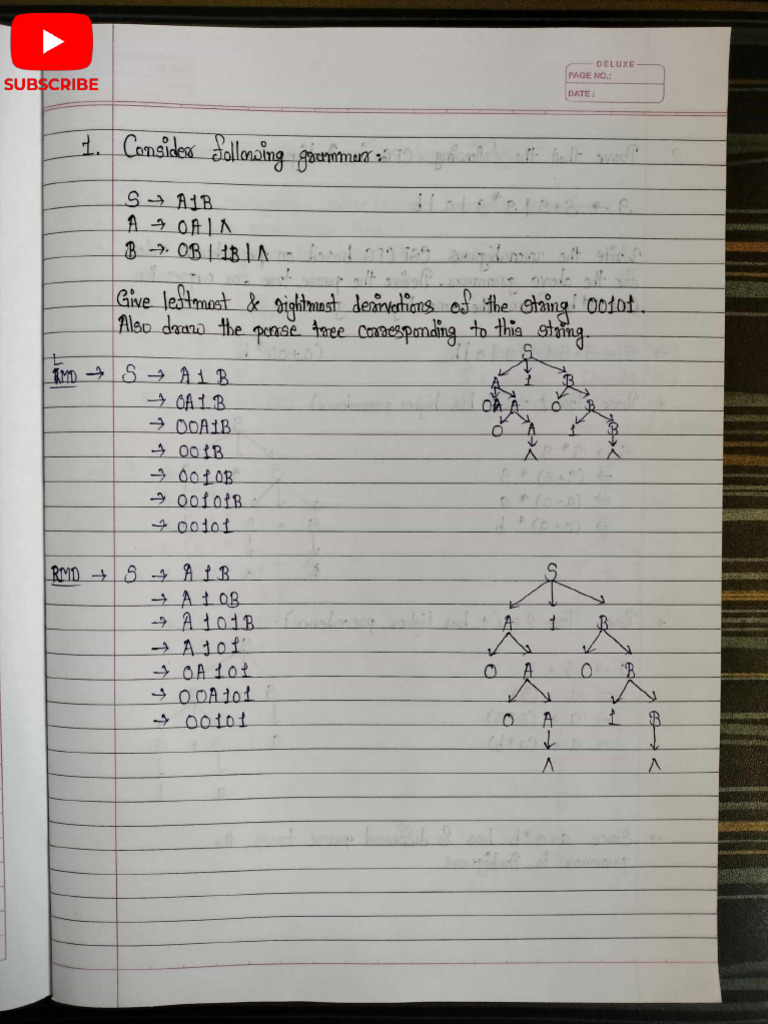 SUBSCRIBE
DELUXE
PAGE NO.:
DATE :
1. Consider following grammer:
S → A1B
A → 0A | Λ
B → 0B | 1B | Λ
Give leftmost & rightmost derivations of the string 00101.
Also draw the parse tree corresponding to this string.
LMD → S → A 1 B
→ 0A1B
→ 00A1B
→ 001B
→ 0010B
→ 00101B
→ 00101
S
A 1 B
0 A 0 B
0 A 1 B
Λ Λ
RMD → S → A 1 B
→ A 1 0B
→ A 1 0 1 B
→ A 1 0 1
→ 0A 1 0 1
→ 00A101
→ 00101
S
A 1 B
0 A 0 B
0 A 1 B
Λ Λ